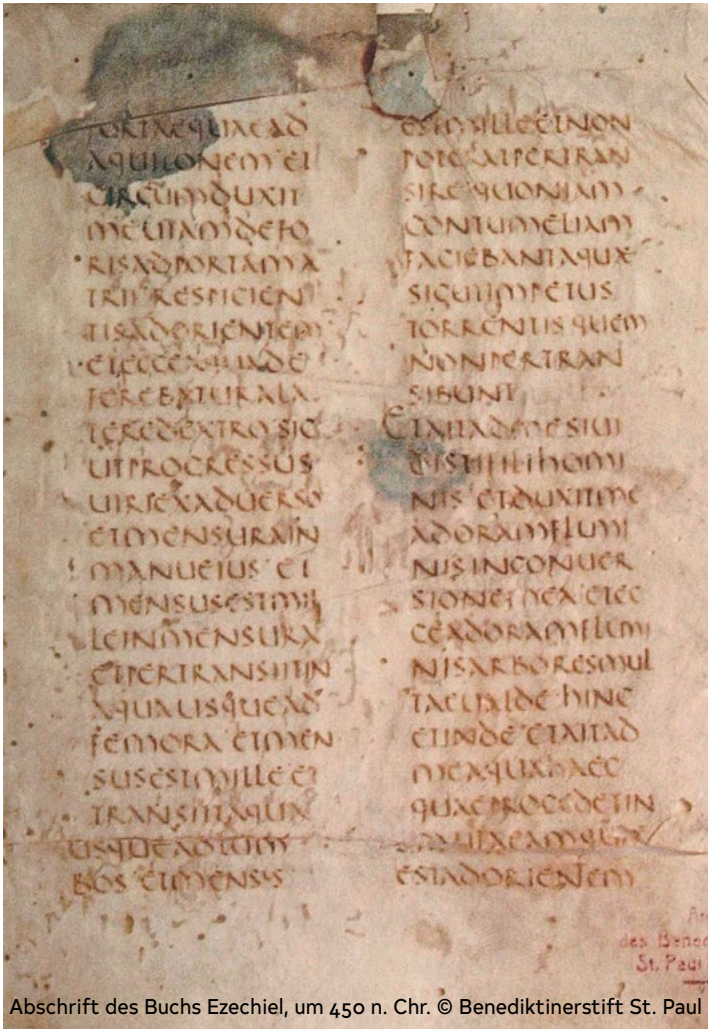 ORTAEQUAEAD
AQUILONEMET
CIRCUMDUXIT
MEUIAMDEFO
RISADPORTAMA
TRII RESPICIEN
TISADORIENTEM
ETECCEAQUADE
FEREBATURALA
TEREDEXTRO SIC
UTPROGRESSUS
UIRIEXADUERSO
ETMENSURAIN
MANUEIUS ET
MENSUSESTMIL
LEINMENSURA
ETPERTRANSIITIN
AQUAUSQUEAD
FEMORA ETMEN
SUSESTMILLE ET
TRANSIITAQUA
USQUEADLUM
BOS ETMENSUS
ESTMILLEETNON
POTERATPERTRAN
SIRE QUONIAM
CONTUMELIAM
FACIEBANTAQUAE
SICUTIMPETUS
TORRENTIS QUEM
NONPERTRAN
SIBUNT
ETAITADME SIUI
DISTIFILIHOMI
NIS ETDUXITME
ADORAMFLUMI
NISINCONUER
SIONEMEA ETEC
CEADORAMFLUMI
NISARBORESMUL
TAEUALDE HINC
ETINDE ETAITAD
MEAQUAHAEC
QUAEPROCEDETIN
ESTADORIENEM
des Bened
St. Paul
Abschrift des Buchs Ezechiel, um 450 n. Chr. © Benediktinerstift St. Paul